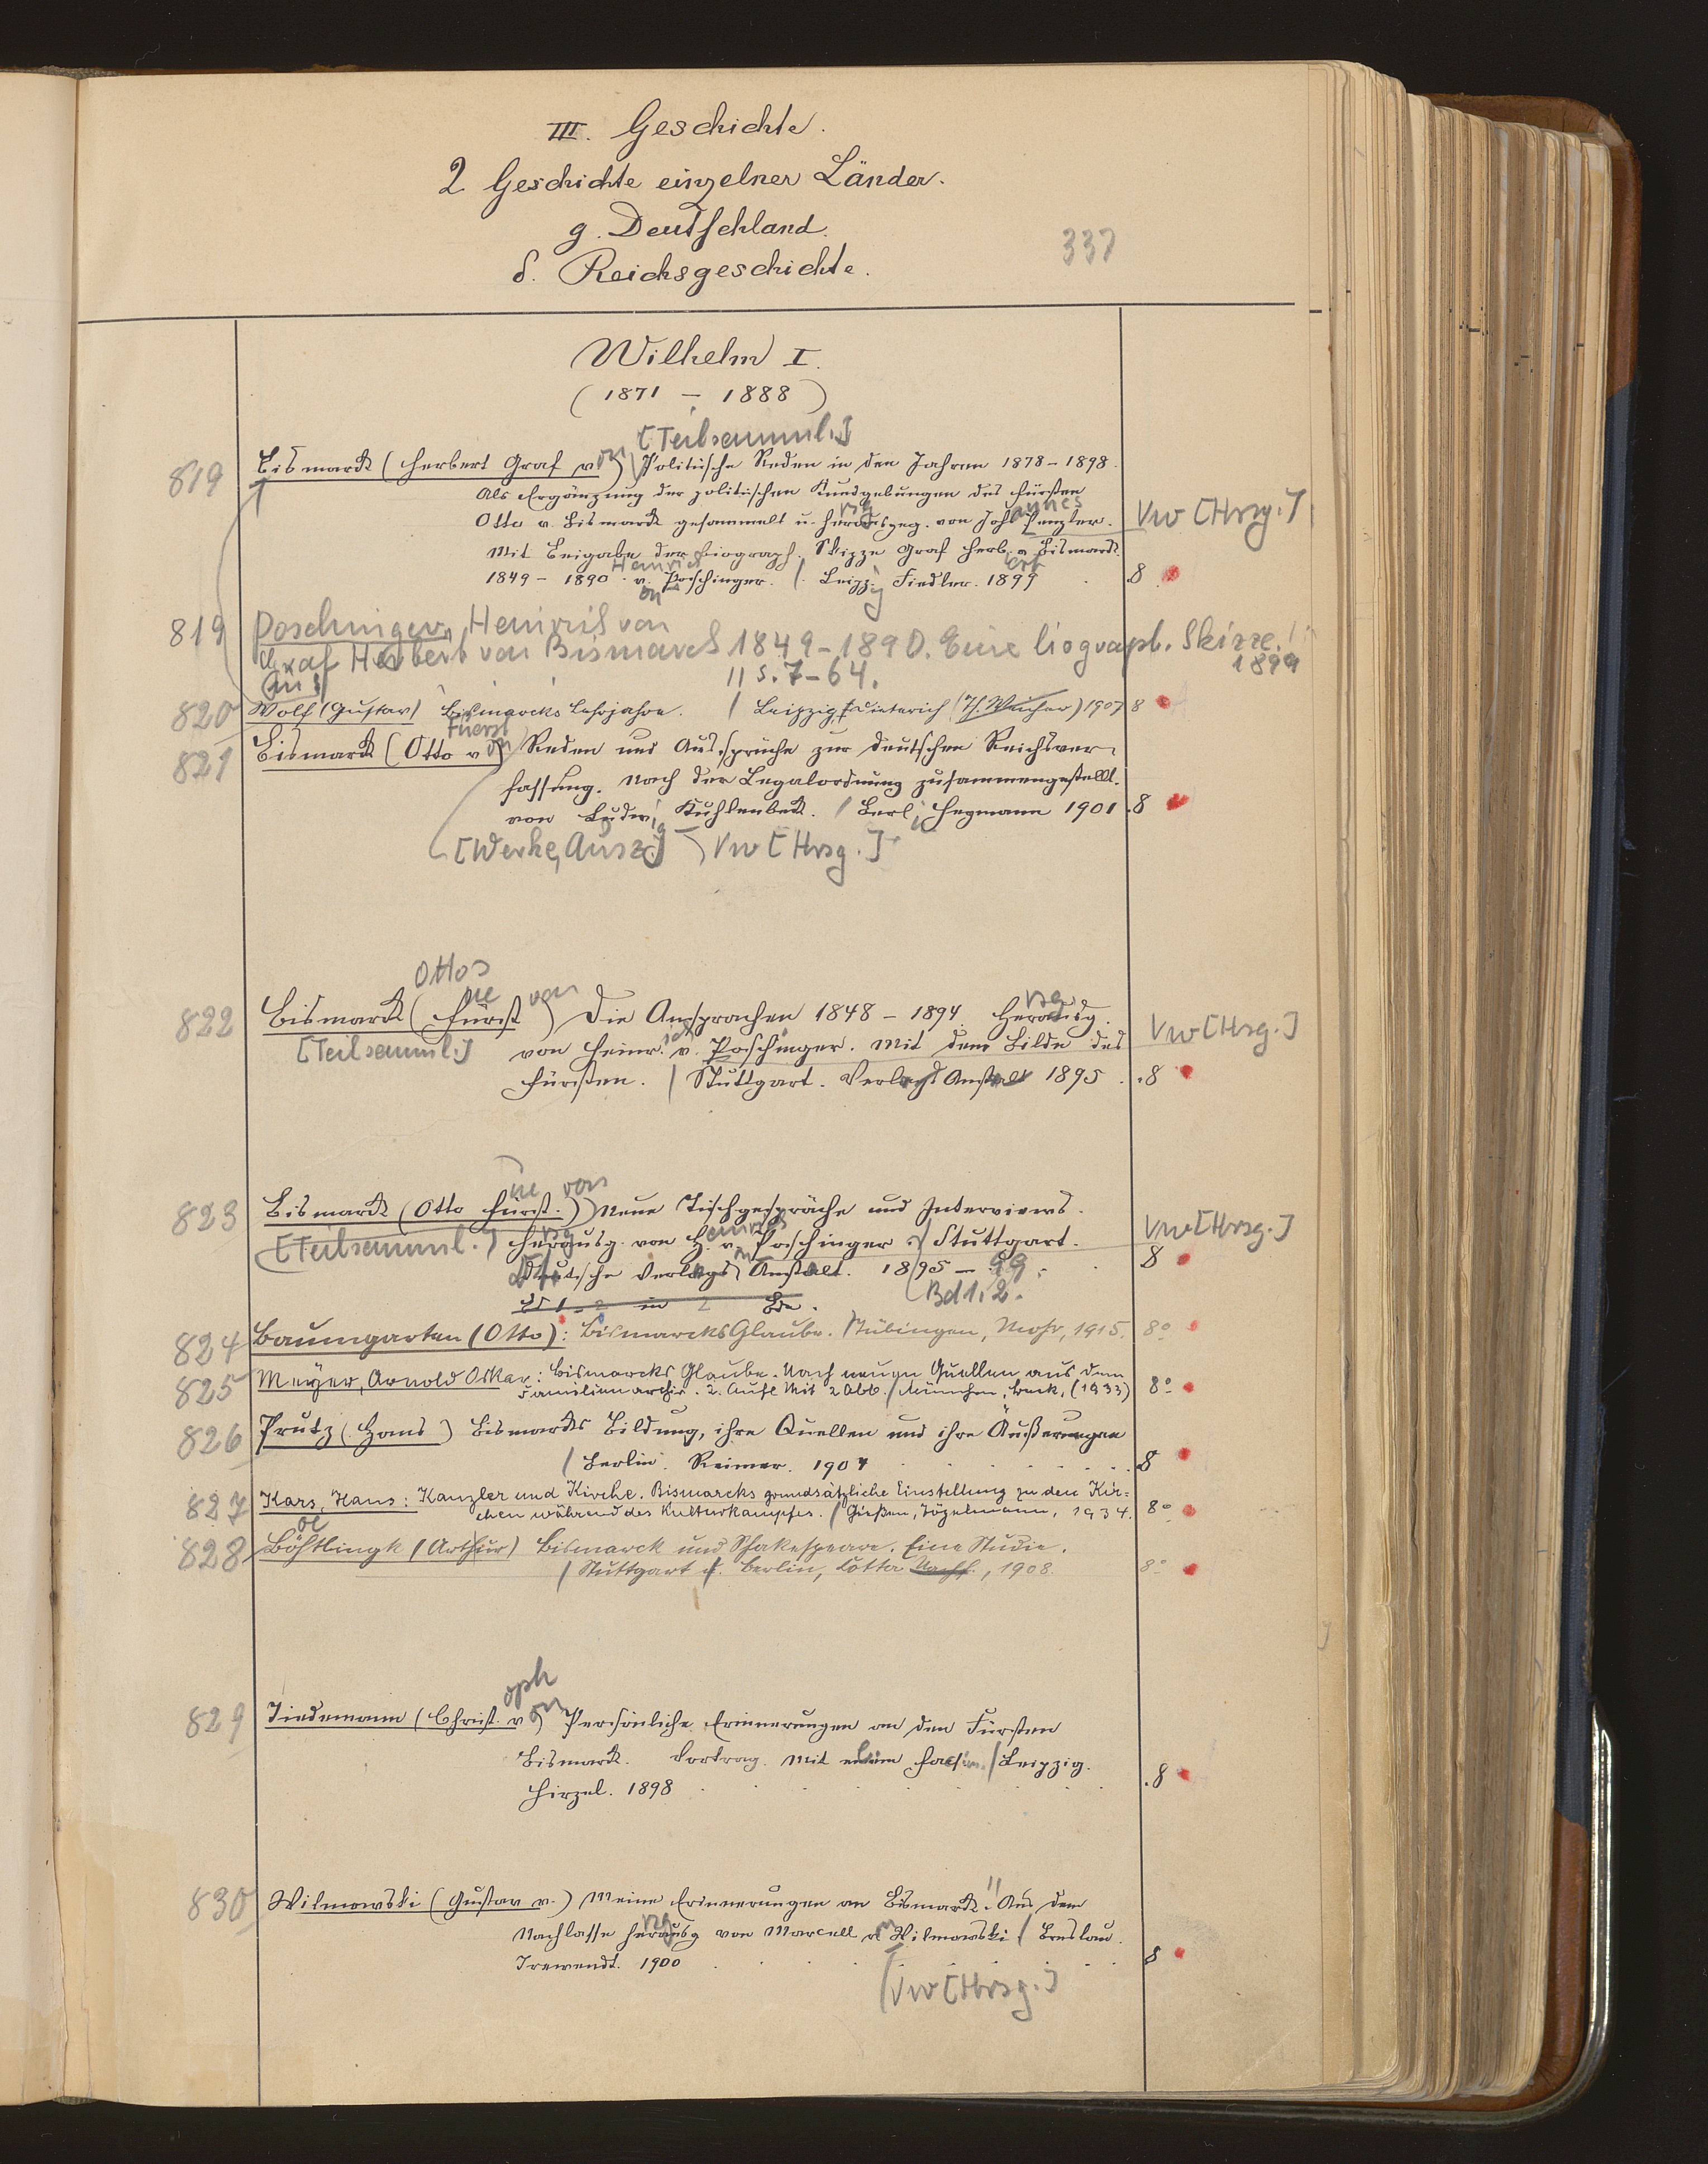 III. Geschichte.
2 Geschichte einzelner Länder.
g. Deutschland.
δ. Reichsgeschichte.
337
Wilhelm I.
(1871 – 1888)
[Teilsamml.]
819 Bismarck (Herbert Graf von) Politische Reden in den Jahren 1878–1898.
Als Ergänzung der politischen Kundgebungen des Fürsten
Otto v. Bismarck gesammelt u. herausgeg. von Johannes Penzler. Vw [Hrsg.]
Mit Beigabe der biograph. Skizze Graf Herb. v. Bismarck
1849–1890 v. Heinrich Poschinger. / Leipzig Fiedler. 1899 8
819 Poschinger, Heinrich von
Graf Herbert von Bismarck 1849–1890. Eine biograph. Skizze. 1899
Aus S. 7–64.
820 Wolf (Gustav) Bismarcks Lehrjahre. / Leipzig, Dieterich (Th. Weicher) 1907 8
821 Bismarck (Otto Fürst von) Reden und Aussprüche zur deutschen Reichsver-
fassung. Nach der Legalordnung zusammengestellt
von Ludwig Kuhlenbeck. / Berlin Heymann 1901. 8
[Werke, Ausz.] Vw [Hrsg.]
Ottos
822 Bismarck (Fürst von) Die Ansprachen 1848–1894. Herausg.
[Teilsamml.] von Heinrich v. Poschinger. Mit dem Bilde des Vw [Hrsg.]
Fürsten. / Stuttgart. Verlags Anstalt 1895. 8
823 Bismarck (Otto Fürst von) Neue Tischgespräche und Interviews.
[Teilsamml.] Herausg. von Heinrich von Poschinger / Stuttgart. Vw [Hrsg.]
Deutsche Verlags Anstalt. 1895–99. 8
Bd 1–2 in 2 Bde. Bd 1. 2.
824 Baumgarten (Otto): Bismarcks Glaube. / Tübingen, Mohr, 1915. 8°
825 Meyer, Arnold Oskar: Bismarcks Glaube. Nach neuen Quellen aus dem
Familienarchiv. 2. Aufl. Mit 2 Abb. / München, Beck, (1933) 8°
826 Prutz (Hans) Bismarcks Bildung, ihre Quellen und ihre Äußerungen
/ Berlin. Reimer. 1904 8
827 Kars, Hans: Kanzler und Kirche. Bismarcks grundsätzliche Einstellung zu den Kir=
chen während des Kulturkampfes. / Gießen, Töpelmann, 1934. 8°
828 Böhtlingk (Arthur) Bismarck und Shakespeare. Eine Studie.
/ Stuttgart u. Berlin, Cotta Nachf., 1908. 8°
829 Tiedemann (Christoph von) Persönliche Erinnerungen an den Fürsten
Bismarck. Vortrag. Mit einem Facsim. / Leipzig.
Hirzel. 1898 8
830 Wilmowski (Gustav v.) Meine Erinnerungen an Bismarck. Aus dem
Nachlasse herausg von Marcell v. Wilmowski / Breslau.
Trewendt. 1900 8
Vw [Hrsg.]